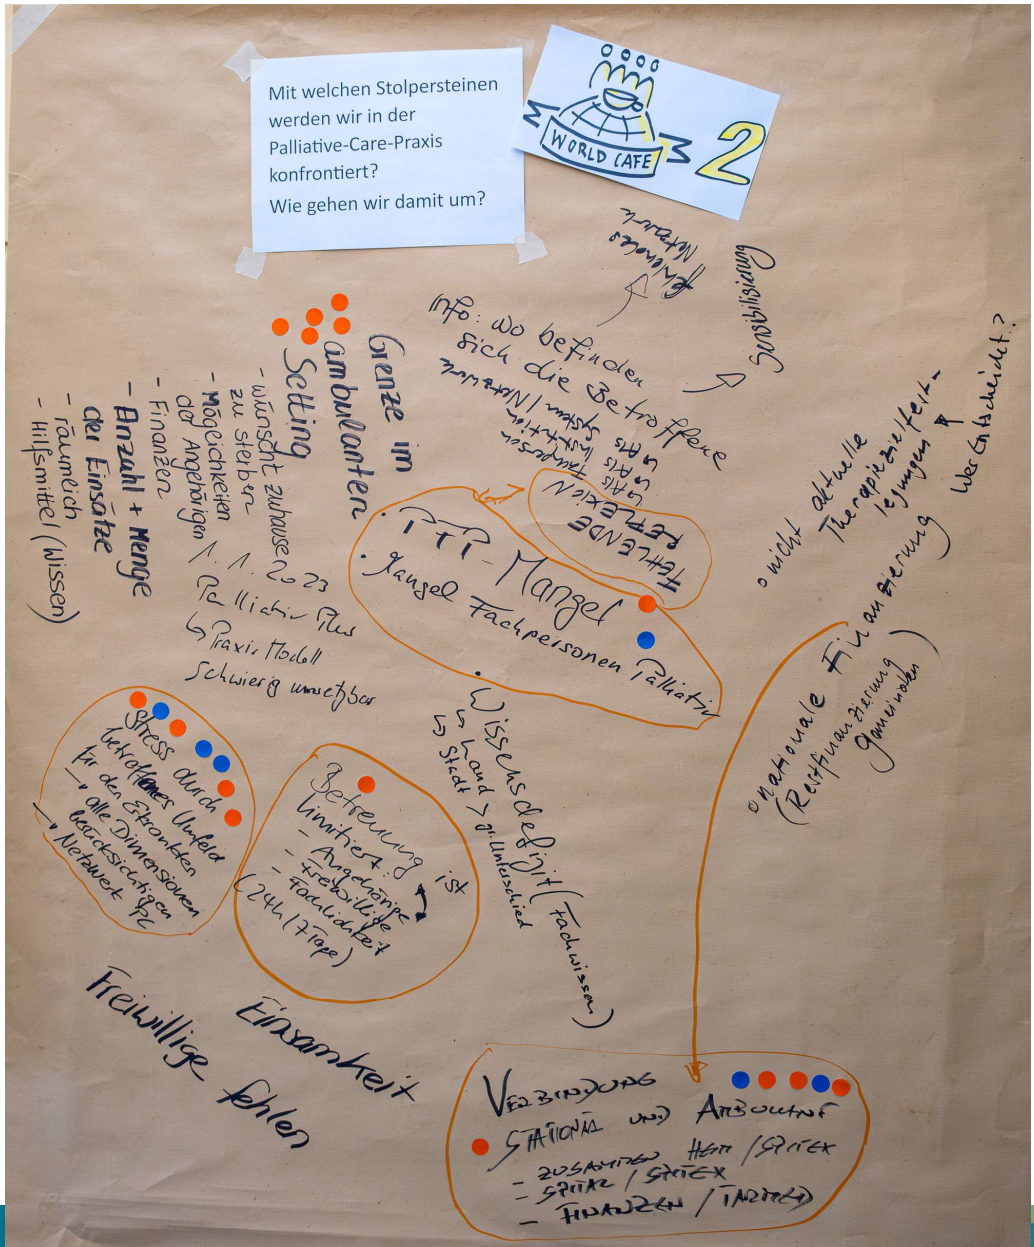 Mit welchen Stolpersteinen
werden wir in der
Palliative-Care-Praxis
konfrontiert?
Wie gehen wir damit um?
WORLD CAFE
2
fehlendes
Netzwerk
Sensibilisierung
Info: wo befinden
sich die Betroffene
↳ Als
↳ Als Institution
↳ Als System / Netzwerk
FEHLENDE
REFLEXION
Grenze im
ambulanten
Setting
- wünscht zuhause
zu sterben
- Möglichkeiten
der Angehörigen
- Finanzen
- Anzahl + Menge
der Einsätze
- räumlich
- Hilfsmittel (Wissen)
1. 1. 2023
Palliativ Plus
↳ Praxis Modell
Schwierig umsetzbar
-Mangel
• Mangel Fachpersonen Palliativ
• Wissensdefizit (Fachwissen)
↳ Land > gr. Unterschied
↳ Stadt
nicht aktuelle
Therapiezielfest-
legungen
Was Entscheidet?
nationale Finanzierung
(Restfinanzierung
Gemeinden)
Stress durch
betroffenes Umfeld
für den Erkrankten
→ alle Dimensionen
berücksichtigen
→ Netzwerk PC
Betreuung ist
limitiert:
- Angehörige
- Freiwillige
- Fachlichkeit
(24h / 7 Tage)
Einsamkeit
Freiwillige fehlen
VERBINDUNG
STATIONÄR UND AMBULANT
- ZUSAMMEN HEIM / SPITEX
- SPITAL / SPITEX
- FINANZEN / TARMED